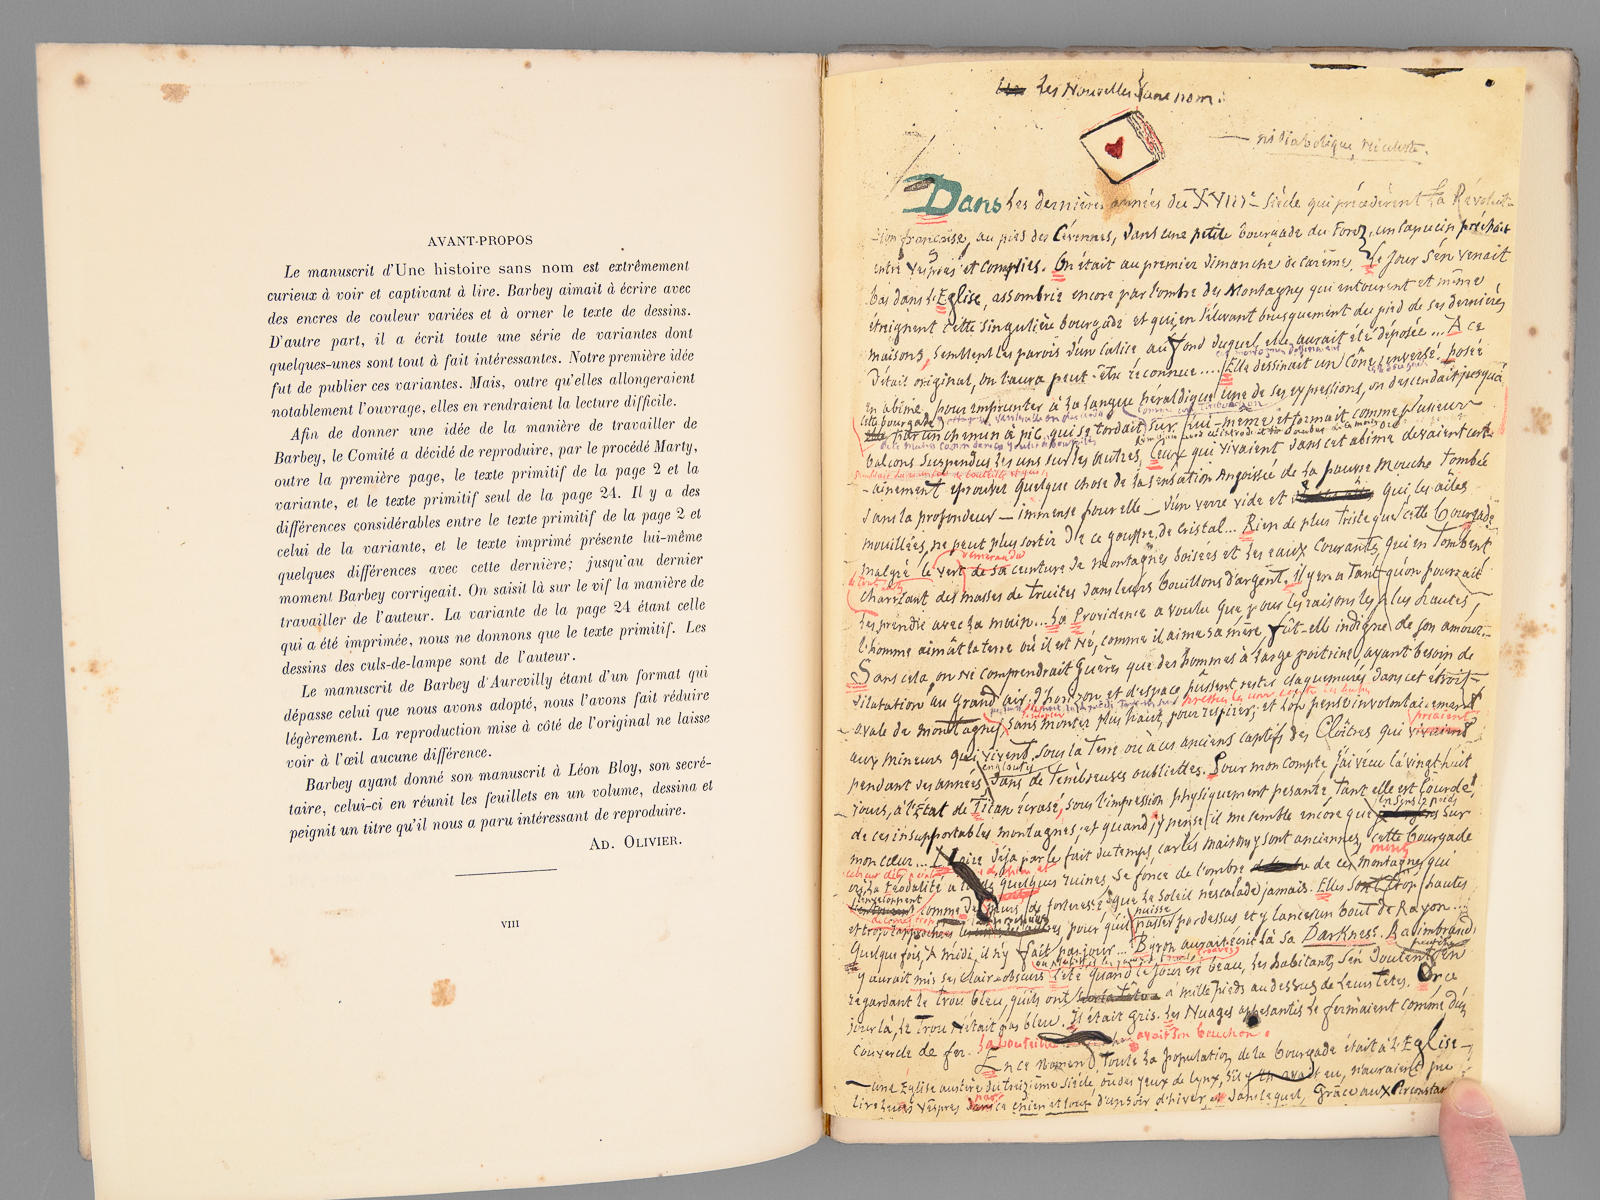 AVANT-PROPOS
Le manuscrit d'Une histoire sans nom est extrêmement
curieux à voir et captivant à lire. Barbey aimait à écrire avec
des encres de couleur variées et à orner le texte de dessins.
D'autre part, il a écrit toute une série de variantes dont
quelques-unes sont tout à fait intéressantes. Notre première idée
fut de publier ces variantes. Mais, outre qu'elles allongeraient
notablement l'ouvrage, elles en rendraient la lecture difficile.
Afin de donner une idée de la manière de travailler de
Barbey, le Comité a décidé de reproduire, par le procédé Marty,
outre la première page, le texte primitif de la page 2 et la
variante, et le texte primitif seul de la page 24. Il y a des
différences considérables entre le texte primitif de la page 2 et
celui de la variante, et le texte imprimé présente lui-même
quelques différences avec cette dernière; jusqu'au dernier
moment Barbey corrigeait. On saisit là sur le vif la manière de
travailler de l'auteur. La variante de la page 24 étant celle
qui a été imprimée, nous ne donnons que le texte primitif. Les
dessins des culs-de-lampe sont de l'auteur.
Le manuscrit de Barbey d'Aurevilly étant d'un format qui
dépasse celui que nous avons adopté, nous l'avons fait réduire
légèrement. La reproduction mise à côté de l'original ne laisse
voir à l'œil aucune différence.
Barbey ayant donné son manuscrit à Léon Bloy, son secré-
taire, celui-ci en réunit les feuillets en un volume, dessina et
peignit un titre qu'il nous a paru intéressant de reproduire.
AD. OLIVIER.
VIII
Les Nouvelles sans nom:
— ni diabolique, ni céleste.
Dans les dernières années du XVIIIe siècle qui précédèrent la Révolut-
ion française, au pied des Cévennes, dans une petite bourgade du Forez, un capucin prêchait
entre vêpres et complies. On était au premier dimanche de carême. Le jour s'en venait
bas dans l'Eglise, assombrie encore par l'ombre des Montagnes qui entourent et même
étreignent cette singulière bourgade et qui, en s'élevant brusquement du pied de ses dernières
maisons, semblent les parois d'un calice au fond duquel elle aurait été déposée... A ce
détail original, on l'aura peut-être reconnue.... Elle dessinait un Cône renversé. posée
en abîme, pour emprunter à la langue héraldique une de ses expressions, on descendait jusqu'à
cette bourgade par un chemin à pic, qui se tordait sur lui-même et formait comme plusieurs
balcons suspendus les uns sur les autres. Ceux qui vivaient dans cet abîme devaient cert-
ainement éprouver quelque chose de la sensation angoissée de la pauvre mouche tombée
dans la profondeur — immense pour elle — d'un verre vide et qui, les ailes
mouillées, ne peut plus sortir de ce gouffre de cristal... Rien de plus triste que cette bourgade
malgré le vert de sa ceinture de montagnes boisées et les eaux courantes, qui en tombent
charriant des masses de truites dans leurs bouillons d'argent. Il y en a tant qu'on pourrait
les prendre avec la main... La Providence a voulu que pour les raisons les plus hautes,
l'homme aimât la terre où il est né, comme il aime sa mère, fût-elle indigne de son amour...
Sans cela, on ne comprendrait guères que des hommes à large poitrine, ayant besoin de
dilatation au Grand air, d'horizon et d'espace pussent rester claquemurés dans cet étroit
ovale de montagnes, sans monter plus haut, pour respirer; et l'on pense involontairement
aux mineurs qui vivent sous la terre ou à ces anciens captifs des Cloîtres qui
pendant des années, dans de ténébreuses oubliettes. Pour mon compte j'ai vécu là vingt-huit
jours, à l'Etat de Titan écrasé, sous l'impression physiquement pesante
de ces insupportables montagnes; et quand j'y pense, il me semble encore que
mon cœur... déjà par le fait du temps, car les maisons y sont anciennes, cette bourgade
quelques ruines, se fonce de l'ombre de ces montagnes qui
comme des murs de forteresse que le soleil n'escalade jamais.
pour qu'il puisse passer par dessus et y lancer un bout de Rayon...
Quelquefois, à midi, il n'y fait pas jour... Byron aurait écrit là sa Darkness. Rambrandt
y aurait mis ses clairs-obscurs. L'été quand le jour est beau, les habitants s'en doutent en
regardant le trou bleu, qu'ils ont à mille pieds au dessus de leurs têtes. Or ce
jour là, le trou n'était pas bleu. Il était gris. Les Nuages appesantis le fermaient comme d'un
couvercle de fer. La bouteille avait son bouchon.
En ce moment, toute la population de la bourgade était à l'Eglise —
— une Eglise austère du treizième siècle, où des yeux de lynx, s'il y en avait eu, n'auraient pu
lire leurs vêpres chien et loup d'un soir d'hiver